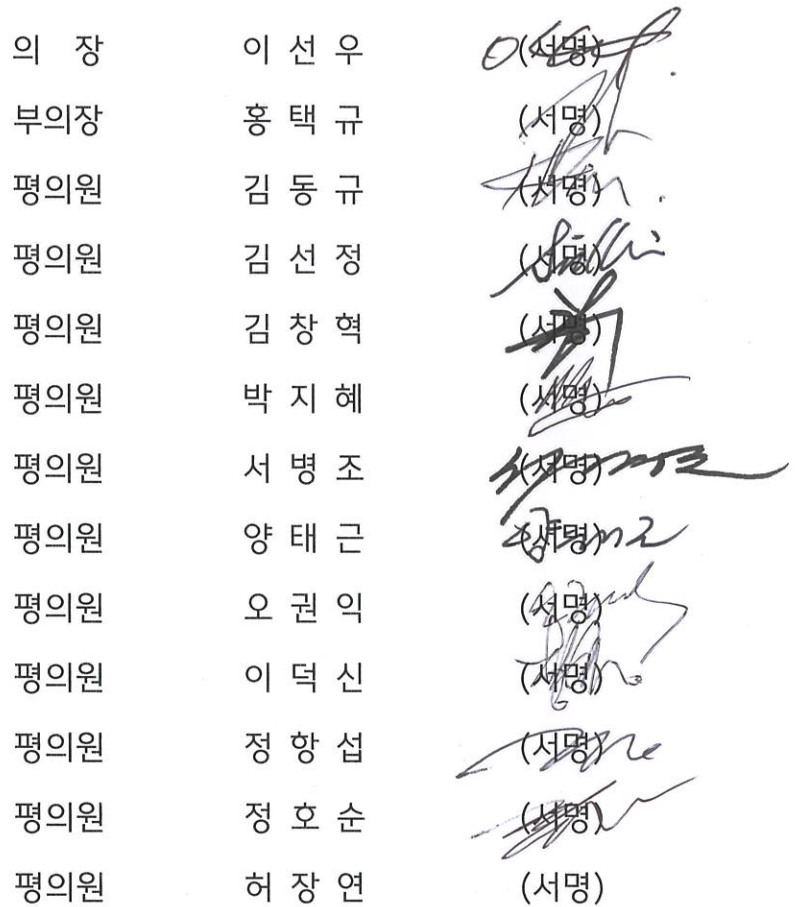 의 장 이 선 우 (서명)
부의장 홍 택 규 (서명)
평의원 김 동 규 (서명)
평의원 김 선 정 (서명)
평의원 김 창 혁 (서명)
평의원 박 지 혜 (서명)
평의원 서 병 조 (서명)
평의원 양 태 근 (서명)
평의원 오 권 익 (서명)
평의원 이 덕 신 (서명)
평의원 정 항 섭 (서명)
평의원 정 호 순 (서명)
평의원 허 장 연 (서명)